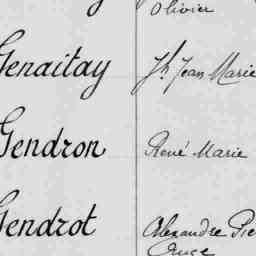 Olivier
Genaitay Jh Jean Marie
Gendron René Marie
Gendrot Alexandre Pie
Ange